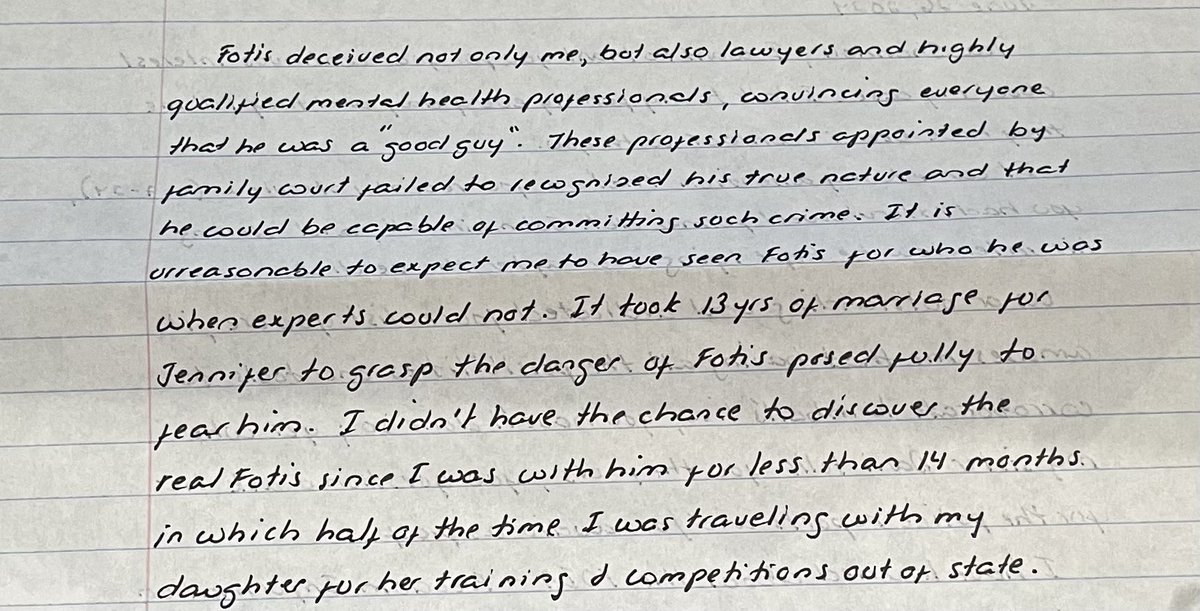 Fotis deceived not only me, but also lawyers and highly
qualified mental health professionals, convincing everyone
that he was a "good guy". These professionals appointed by
family court failed to recognized his true nature and that
he could be capable of committing such crime. It is
unreasonable to expect me to have seen Fotis for who he was
when experts could not. It took 13 yrs of marriage for
Jennifer to grasp the danger of Fotis posed fully to
fear him. I didn't have the chance to discover the
real Fotis since I was with him for less than 14 months
in which half of the time I was traveling with my
daughter for her training & competitions out of state.